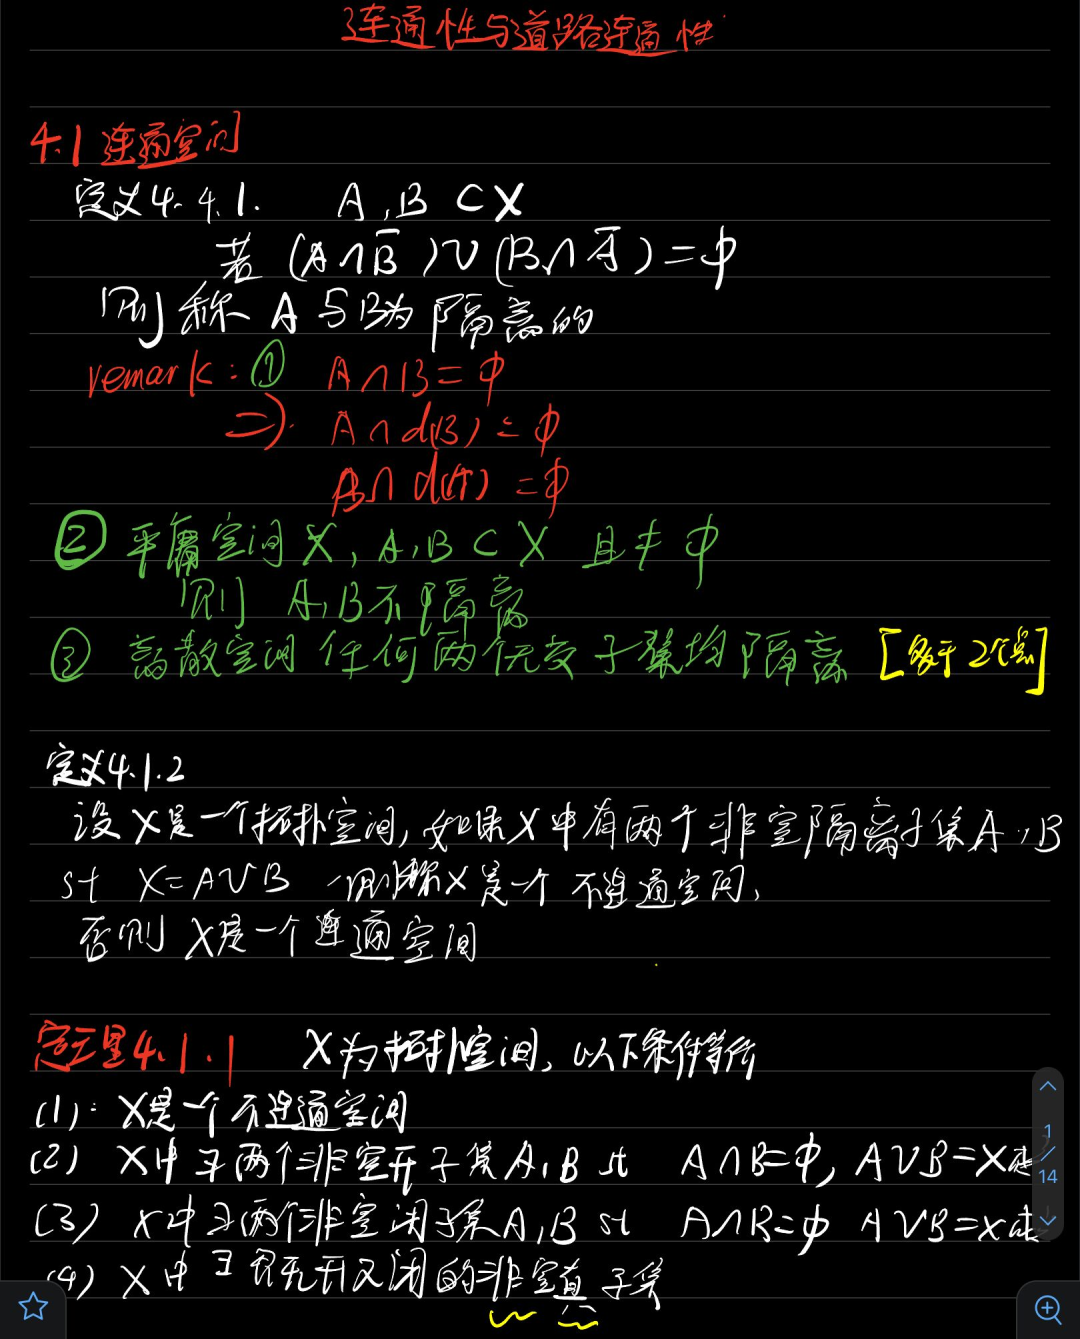 连通性与道路连通性
4.1 连通空间
定义4.4.1. A,B ⊂ X
若 (A∩B̅)∪(B∩A̅)=φ
则称 A与B为隔离的
remark: ① A∩B=φ
⇒ A∩d(B)=φ
B∩d(A)=φ
② 平庸空间X, A,B⊂X 且≠φ
则 A,B不隔离
③ 离散空间任何两个无交子集均隔离 [多于2个点]
定义4.1.2
设X是一个拓扑空间,如果X中有两个非空隔离子集A,B
st X=A∪B 则称X是一个不连通空间,
否则X是一个连通空间
定理4.1.1 X为拓扑空间, 以下条件等价
(1): X是一个不连通空间
(2) X中∃两个非空开子集A,B st A∩B=φ, A∪B=X
(3) X中∃两个非空闭子集A,B st A∩B=φ A∪B=X
(4) X中∃ 开又闭的非空真子集
1
14